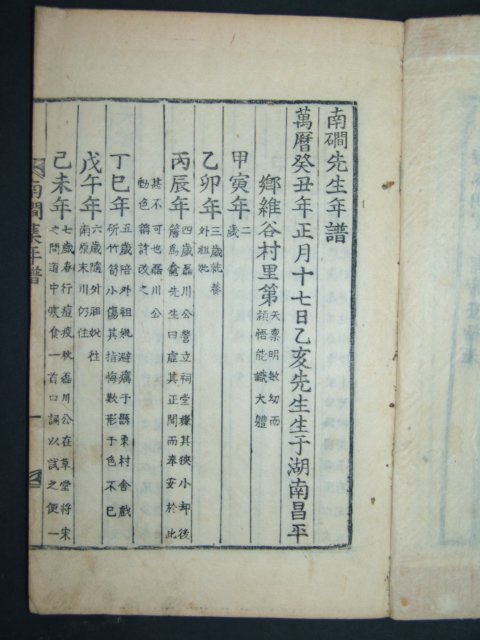 南磵先生年譜
萬曆癸丑年正月十七日乙亥先生生于湖南昌平
鄉維谷村里第
天禀明敏幼而
穎悟能識大軆
甲寅年
二
歲
乙卯年
三歲就養
外祖妣
丙辰年
四歲磊川公營立祠堂嫌其狹小却後
簷爲龕先生曰虛其正間而奉安於此
甚不可也磊川公
動色稱許改之
丁巳年
五歲陪外祖規避癘于縣東村舍戲
斫竹筍小傷其指悔歎形于色不已
戊午年
六歲隨外祖妣往
南原末川仍住
己未年
七歲春行痘疫秋磊川公在草堂將宋
之問道中寒食一首口誦以試之便一
南磵集年譜
一